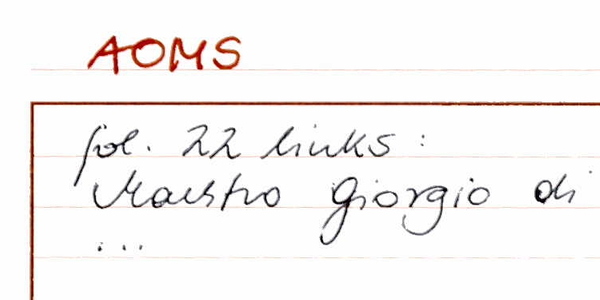 AOMS
fol. 22 links:
Maestro Giorgio di
...